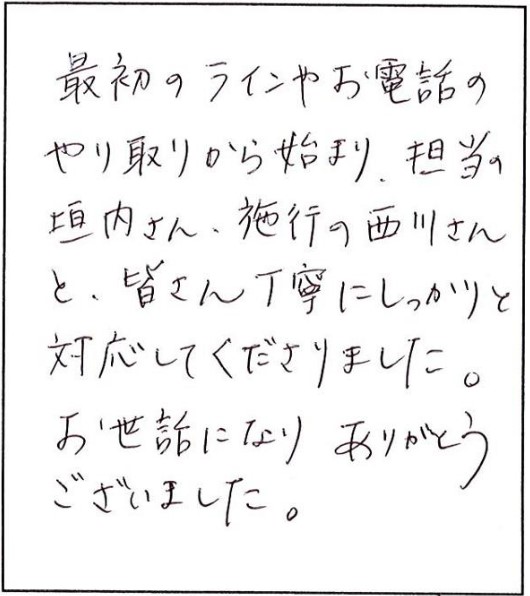 最初のラインやお電話の
やり取りから始まり、担当の
垣内さん、施行の西川さん
と、皆さん丁寧にしっかりと
対応してくださりました。
お世話になり ありがとう
ございました。